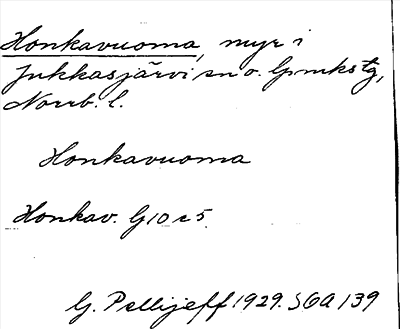 Honkavuoma, myr i
Jukkasjärvi sn o. lpmkstg,
Norrb. l.
Honkavuoma
Honkav. G10c5
G. Pellijeff 1929. SOA 139